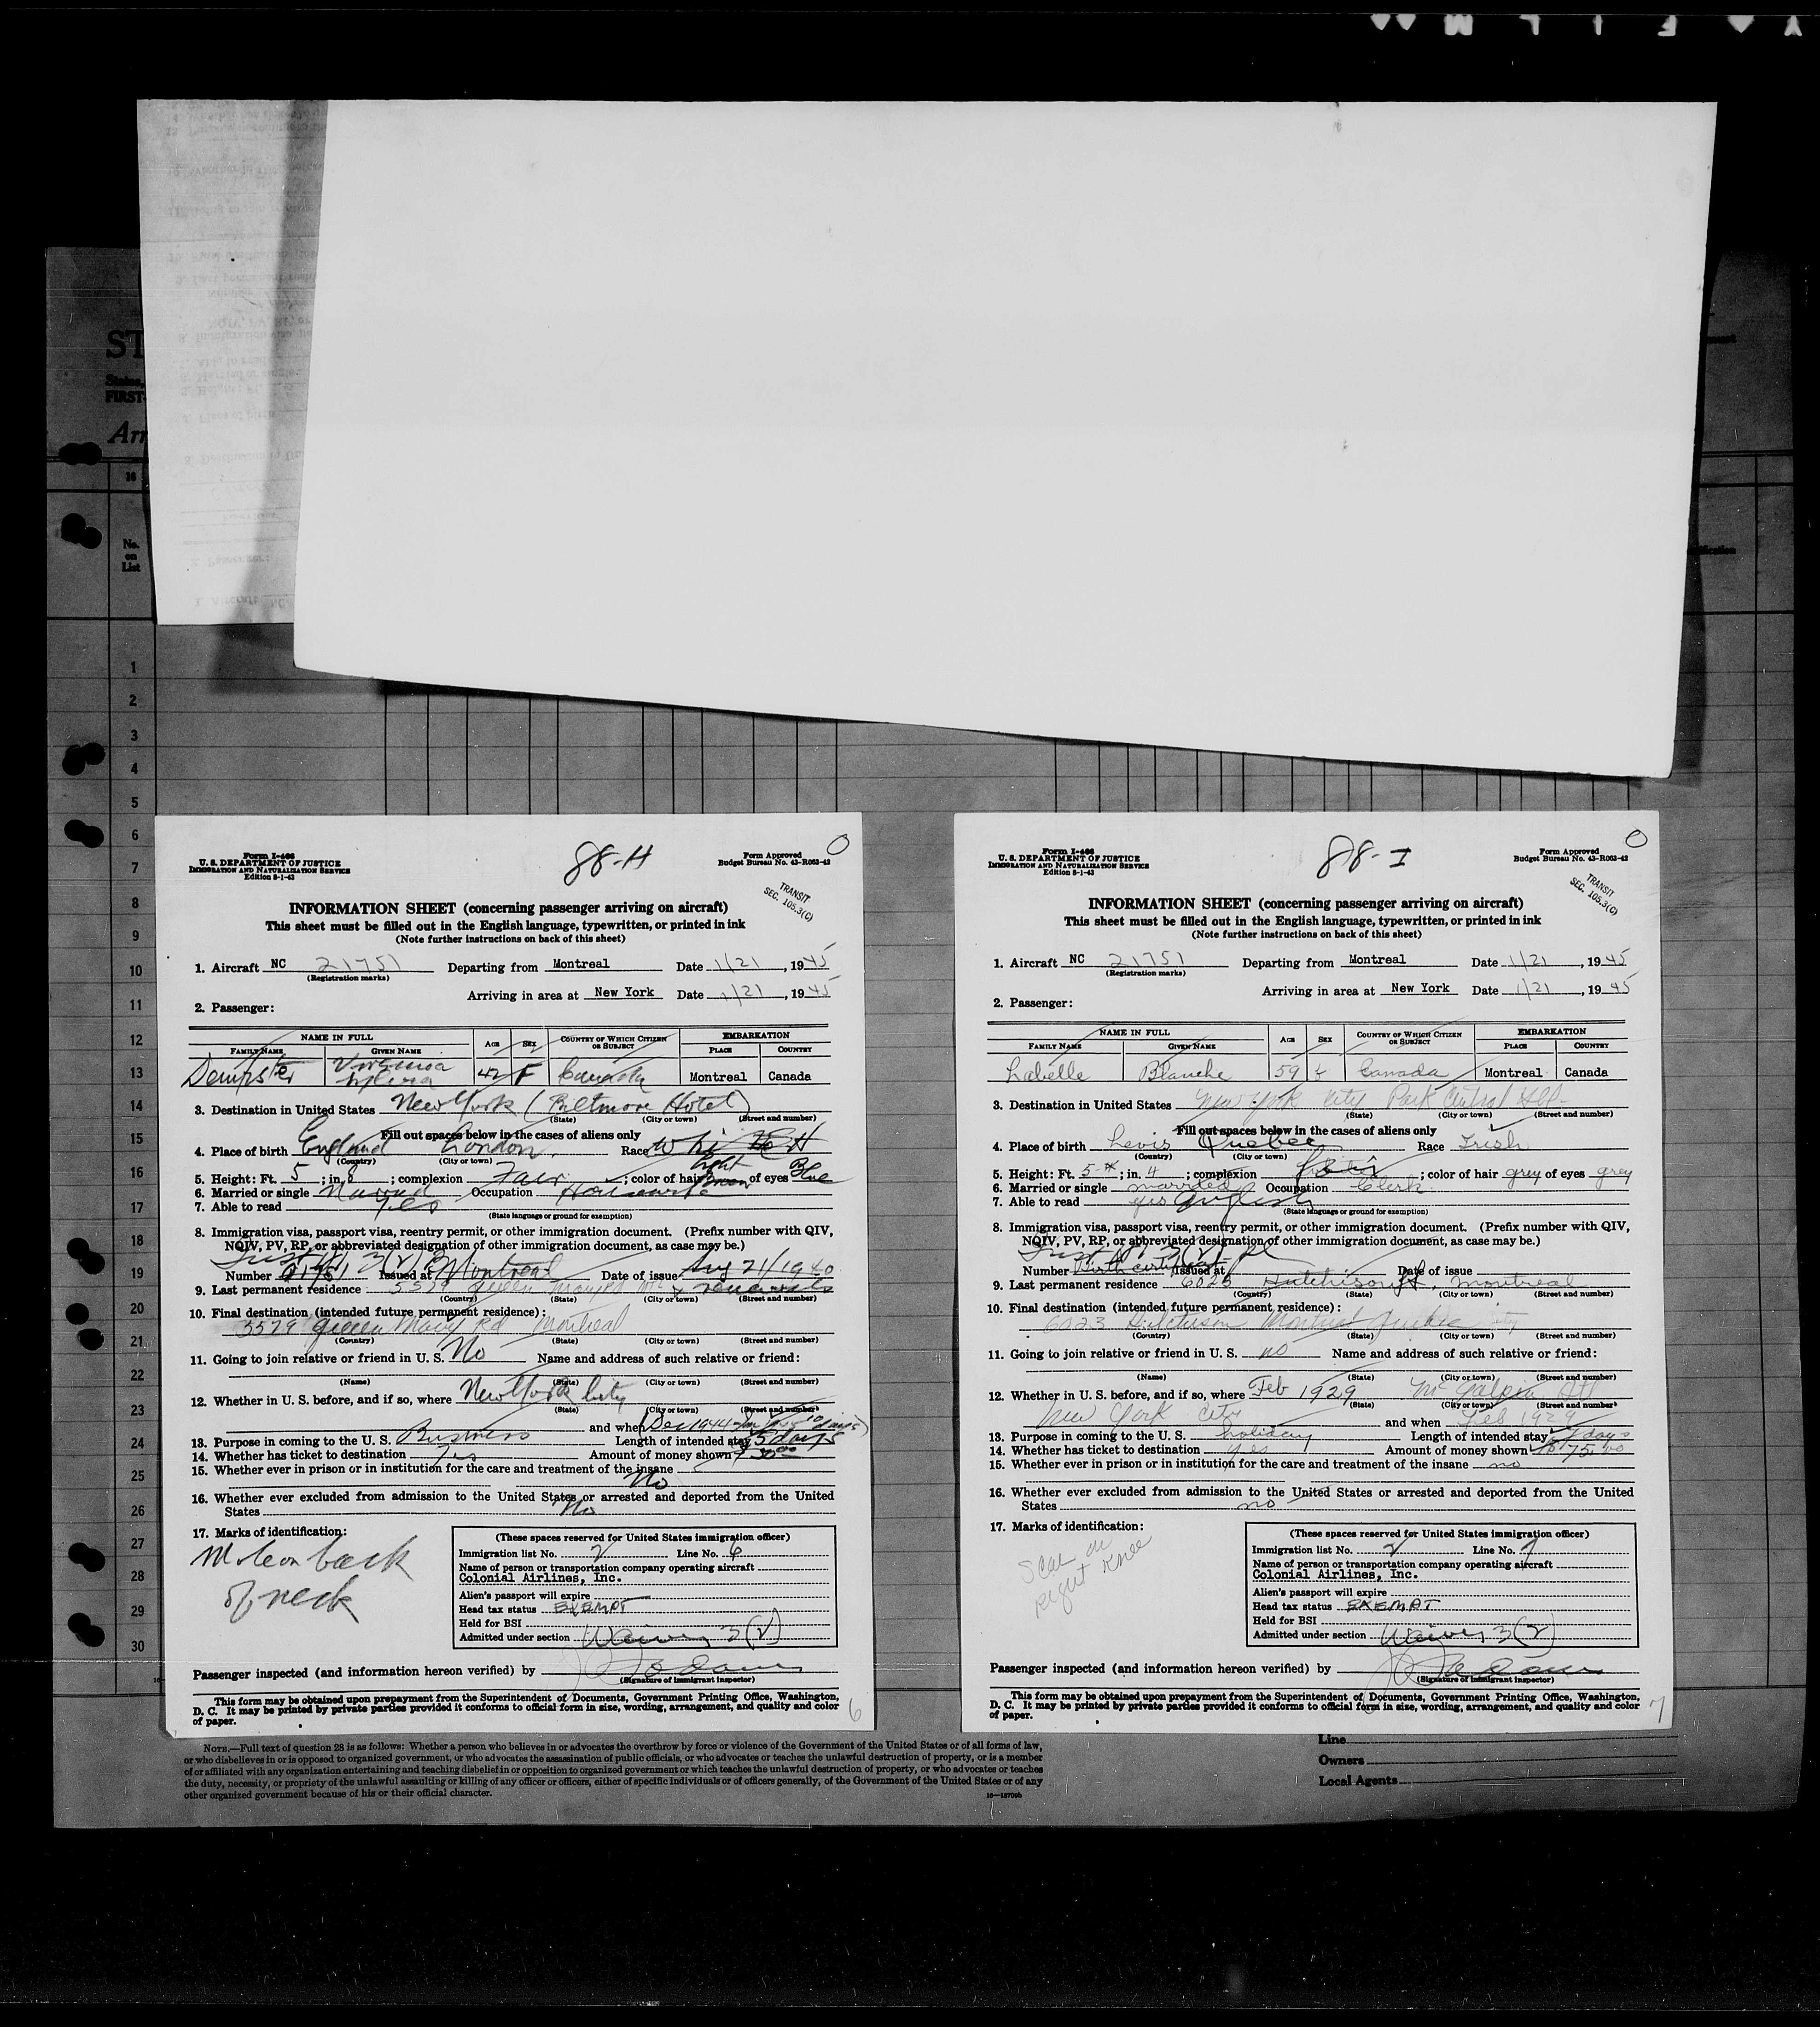 No.
on
List
1
2
3
4
5
6
7
8
9
10
11
12
13
14
15
16
17
18
19
20
21
22
23
24
25
26
27
28
29
30
Form I-466
U. S. DEPARTMENT OF JUSTICE
IMMIGRATION AND NATURALIZATION SERVICE
Edition 8-1-43
88-H
Form Approved
Budget Bureau No. 43-R063-42
TRANSIT
SEC. 105.3(C)
INFORMATION SHEET (concerning passenger arriving on aircraft)
This sheet must be filled out in the English language, typewritten, or printed in ink
(Note further instructions on back of this sheet)
1. Aircraft NC 21751 Departing from Montreal Date 1/21, 1945
(Registration marks)
Arriving in area at New York Date 1/21, 1945
2. Passenger:
NAME IN FULL AGE SEX COUNTRY OF WHICH CITIZEN OR SUBJECT EMBARKATION
FAMILY NAME GIVEN NAME PLACE COUNTRY
Dempster 42 F Canada Montreal Canada
3. Destination in United States New York (Biltmore Hotel)
(State) (City or town) (Street and number)
Fill out spaces below in the cases of aliens only
4. Place of birth England London Race
(Country) (City or town)
5. Height: Ft. 5; in. 8; complexion Fair; color of hair light Brown of eyes Blue
6. Married or single Married Occupation Housewife
7. Able to read Yes
(State language or ground for exemption)
8. Immigration visa, passport visa, reentry permit, or other immigration document. (Prefix number with QIV,
NQIV, PV, RP, or abbreviated designation of other immigration document, as case may be.)
Number Issued at Montreal Date of issue Aug 21/1940
9. Last permanent residence 5579 Queen Mary Rd renewals
(Country) (State) (City or town) (Street and number)
10. Final destination (intended future permanent residence):
5579 Queen Mary Rd Montreal
(Country) (State) (City or town) (Street and number)
11. Going to join relative or friend in U. S. No Name and address of such relative or friend:
(Name) (State) (City or town) (Street and number)
12. Whether in U. S. before, and if so, where New York City
(State) (City or town) (Street and number)
and when Dec 1944 10 days)
13. Purpose in coming to the U. S. Business Length of intended stay 5 days
14. Whether has ticket to destination Yes Amount of money shown
15. Whether ever in prison or in institution for the care and treatment of the insane
No
16. Whether ever excluded from admission to the United States or arrested and deported from the United
States No
17. Marks of identification:
Mole on back
of neck
(These spaces reserved for United States immigration officer)
Immigration list No. 2 Line No. 6
Name of person or transportation company operating aircraft
Colonial Airlines, Inc.
Alien's passport will expire
Head tax status EXEMPT
Held for BSI
Admitted under section Waiver 3(2)
Passenger inspected (and information hereon verified) by
(Signature of immigrant inspector)
This form may be obtained upon prepayment from the Superintendent of Documents, Government Printing Office, Washington,
D. C. It may be printed by private parties provided it conforms to official form in size, wording, arrangement, and quality and color
of paper.
6
Form I-466
U. S. DEPARTMENT OF JUSTICE
IMMIGRATION AND NATURALIZATION SERVICE
Edition 8-1-43
88-I
Form Approved
Budget Bureau No. 43-R063-42
TRANSIT
SEC. 105.3(C)
INFORMATION SHEET (concerning passenger arriving on aircraft)
This sheet must be filled out in the English language, typewritten, or printed in ink
(Note further instructions on back of this sheet)
1. Aircraft NC 21751 Departing from Montreal Date 1/21, 1945
(Registration marks)
Arriving in area at New York Date 1/21, 1945
2. Passenger:
NAME IN FULL AGE SEX COUNTRY OF WHICH CITIZEN OR SUBJECT EMBARKATION
FAMILY NAME GIVEN NAME PLACE COUNTRY
Labelle Blanche 59 f Canada Montreal Canada
3. Destination in United States New York City Park Central Htl-
(State) (City or town) (Street and number)
Fill out spaces below in the cases of aliens only
4. Place of birth Levis Quebec Race Irish
(Country) (City or town)
5. Height: Ft. 5; in. 4; complexion; color of hair grey of eyes grey
6. Married or single married Occupation Clerk
7. Able to read yes English
(State language or ground for exemption)
8. Immigration visa, passport visa, reentry permit, or other immigration document. (Prefix number with QIV,
NQIV, PV, RP, or abbreviated designation of other immigration document, as case may be.)
Number Birth certificate Issued at Date of issue
9. Last permanent residence 6023 Hutchison St, Montreal
(Country) (State) (City or town) (Street and number)
10. Final destination (intended future permanent residence):
6023 Hutchison Montreal Quebec City
(Country) (State) (City or town) (Street and number)
11. Going to join relative or friend in U. S. no Name and address of such relative or friend:
(Name) (State) (City or town) (Street and number)
12. Whether in U. S. before, and if so, where Feb 1929 McAlpin Htl
(State) (City or town) (Street and number)
New York City and when Feb 1929
13. Purpose in coming to the U. S. holiday Length of intended stay 7 days
14. Whether has ticket to destination yes Amount of money shown 75.00
15. Whether ever in prison or in institution for the care and treatment of the insane no
16. Whether ever excluded from admission to the United States or arrested and deported from the United
States no
17. Marks of identification:
Scar on
right knee
(These spaces reserved for United States immigration officer)
Immigration list No. 2 Line No. 7
Name of person or transportation company operating aircraft
Colonial Airlines, Inc.
Alien's passport will expire
Head tax status EXEMPT
Held for BSI
Admitted under section Waiver 3(2)
Passenger inspected (and information hereon verified) by
(Signature of immigrant inspector)
This form may be obtained upon prepayment from the Superintendent of Documents, Government Printing Office, Washington,
D. C. It may be printed by private parties provided it conforms to official form in size, wording, arrangement, and quality and color
of paper.
7
NOTE.—Full text of question 28 is as follows: Whether a person who believes in or advocates the overthrow by force or violence of the Government of the United States or of all forms of law,
or who disbelieves in or is opposed to organized government, or who advocates the assassination of public officials, or who advocates or teaches the unlawful destruction of property, or is a member
of or affiliated with any organization entertaining and teaching disbelief in or opposition to organized government or which teaches the unlawful destruction of property, or who advocates or teaches
the duty, necessity, or propriety of the unlawful assaulting or killing of any officer or officers, either of specific individuals or of officers generally, of the Government of the United States or of any
other organized government because of his or their official character.
Line
Owners
Local Agents